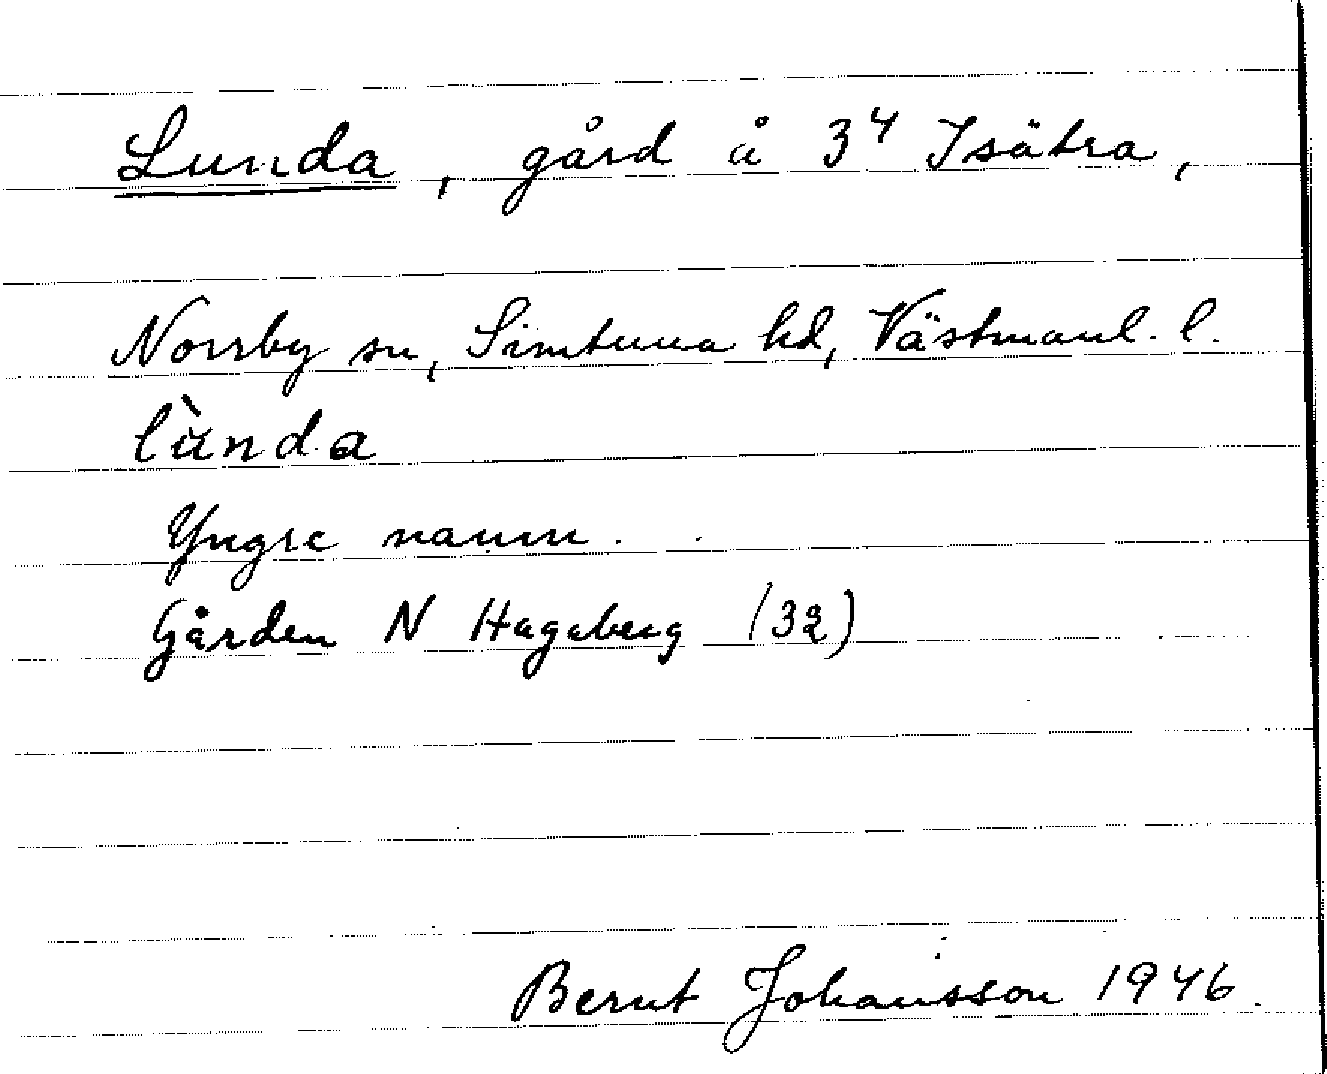 Lunda, gård å 3⁴ Isätra,
Norrby sn, Simtuna hd, Västmanl. l.
lùnda
Yngre namn.
Gården N Hagaberg (32)
Bernt Johansson 1946.